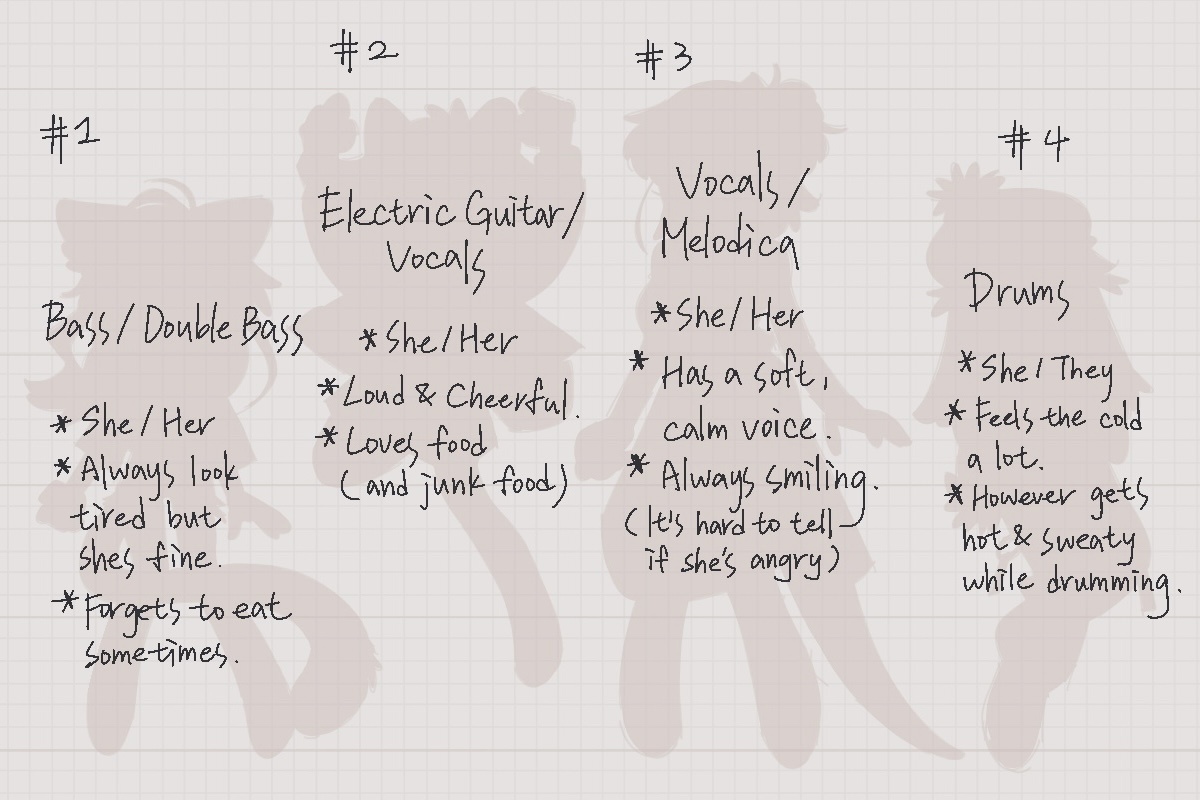 #1
Bass/Double Bass
* She/Her
* Always look
tired but
shes fine.
* Forgets to eat
sometimes.
#2
Electric Guitar/
Vocals
* She/Her
* Loud & Cheerful.
* Loves food
(and junk food)
#3
Vocals/
Melodica
* She/Her
* Has a soft,
calm voice.
* Always smiling.
(It's hard to tell
if she's angry)
#4
Drums
* She/They
* Feels the cold
a lot.
* However gets
hot & sweaty
while drumming.